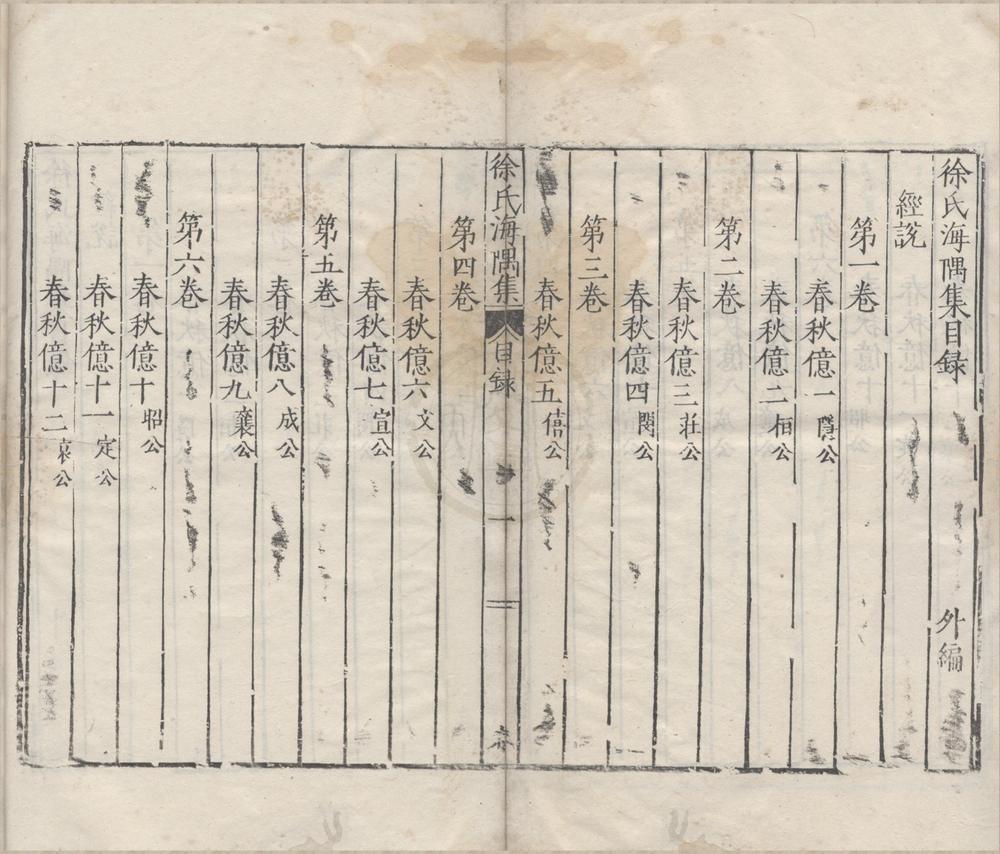 徐氏海隅集目録 外編
經説
第一卷
春秋億一 隱公
春秋億二 桓公
第二卷
春秋億三 莊公
春秋億四 閔公
第三卷
春秋億五 僖公
徐氏海隅集 目録 一
第四卷
春秋億六 文公
春秋億七 宣公
第五卷
春秋億八 成公
春秋億九 襄公
第六卷
春秋億十 昭公
春秋億十一 定公
春秋億十二 哀公